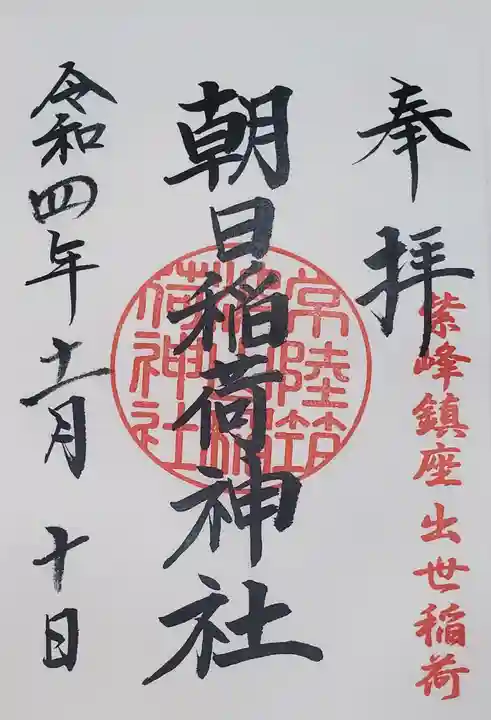 紫峰鎮座出世稲荷
奉拝
朝日稲荷神社
常陸筑
荷神社
令和四年十一月十日